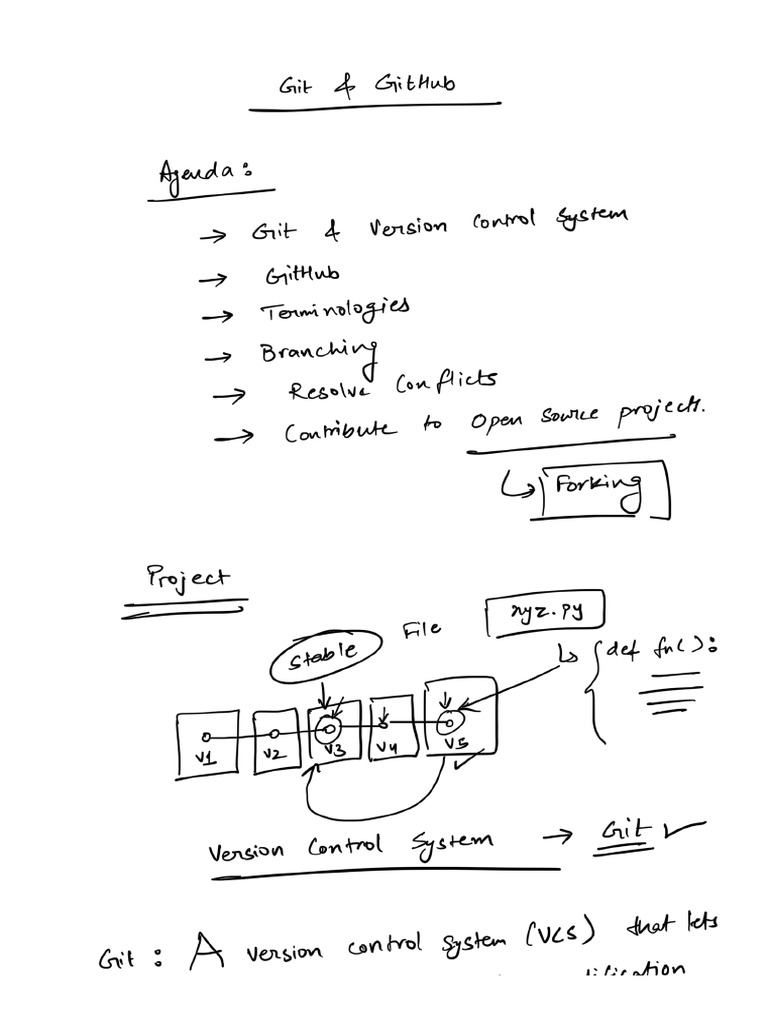 Git & GitHub
Agenda:
→ Git & Version Control System
→ GitHub
→ Terminologies
→ Branching
→ Resolve Conflicts
→ Contribute to Open Source projects.
Forking
Project
File
xyz.py
Stable
def fn():
V1 V2 V3 V4 V5
Version Control System → Git ✓
Git : A version control system (VCS) that lets